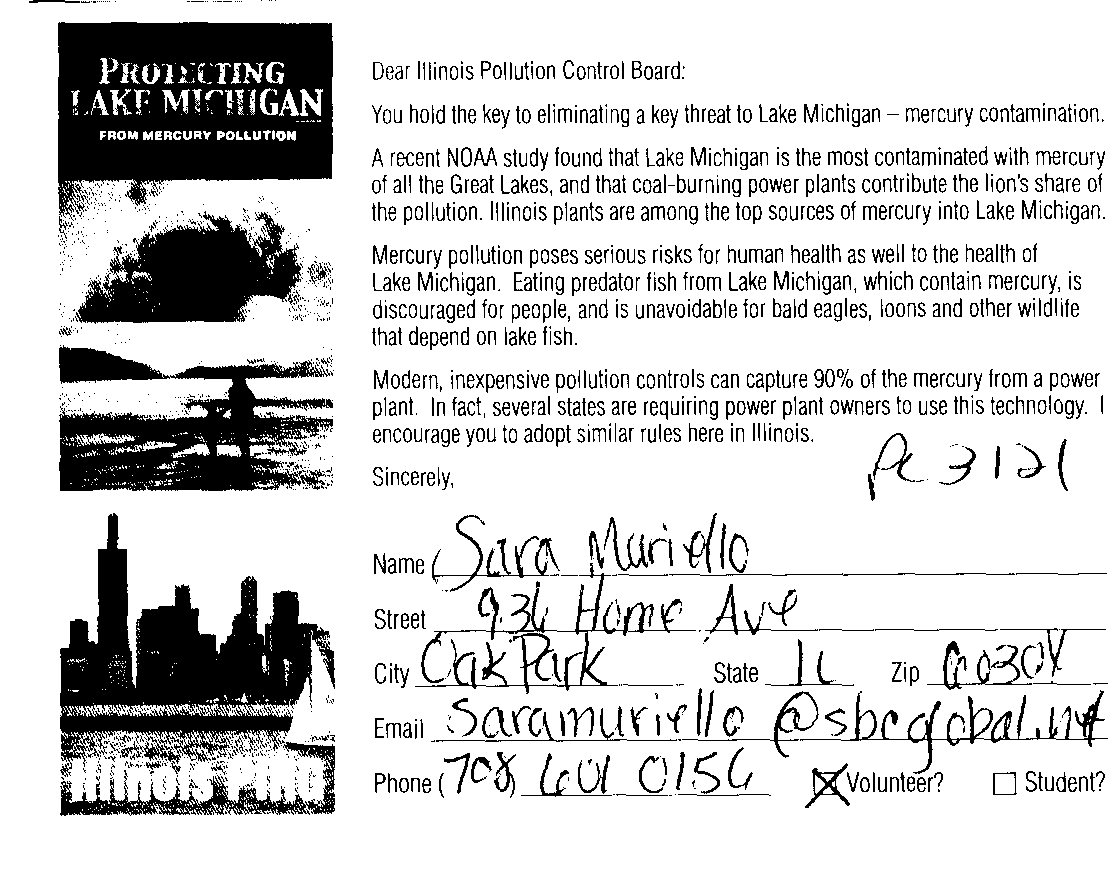 PROTECTING
LAKE MICHIGAN
FROM MERCURY POLLUTION
Illinois PIRG
Dear Illinois Pollution Control Board:
You hold the key to eliminating a key threat to Lake Michigan – mercury contamination.
A recent NOAA study found that Lake Michigan is the most contaminated with mercury
of all the Great Lakes, and that coal-burning power plants contribute the lion's share of
the pollution. Illinois plants are among the top sources of mercury into Lake Michigan.
Mercury pollution poses serious risks for human health as well to the health of
Lake Michigan. Eating predator fish from Lake Michigan, which contain mercury, is
discouraged for people, and is unavoidable for bald eagles, loons and other wildlife
that depend on lake fish.
Modern, inexpensive pollution controls can capture 90% of the mercury from a power
plant. In fact, several states are requiring power plant owners to use this technology. I
encourage you to adopt similar rules here in Illinois.
PC 3121
Sincerely,
Name Sara Muriello
Street 936 Home Ave
City Oak Park State IL Zip 60304
Email saramuriello @sbcglobal.net
Phone (708) 601 0156 Volunteer? Student?